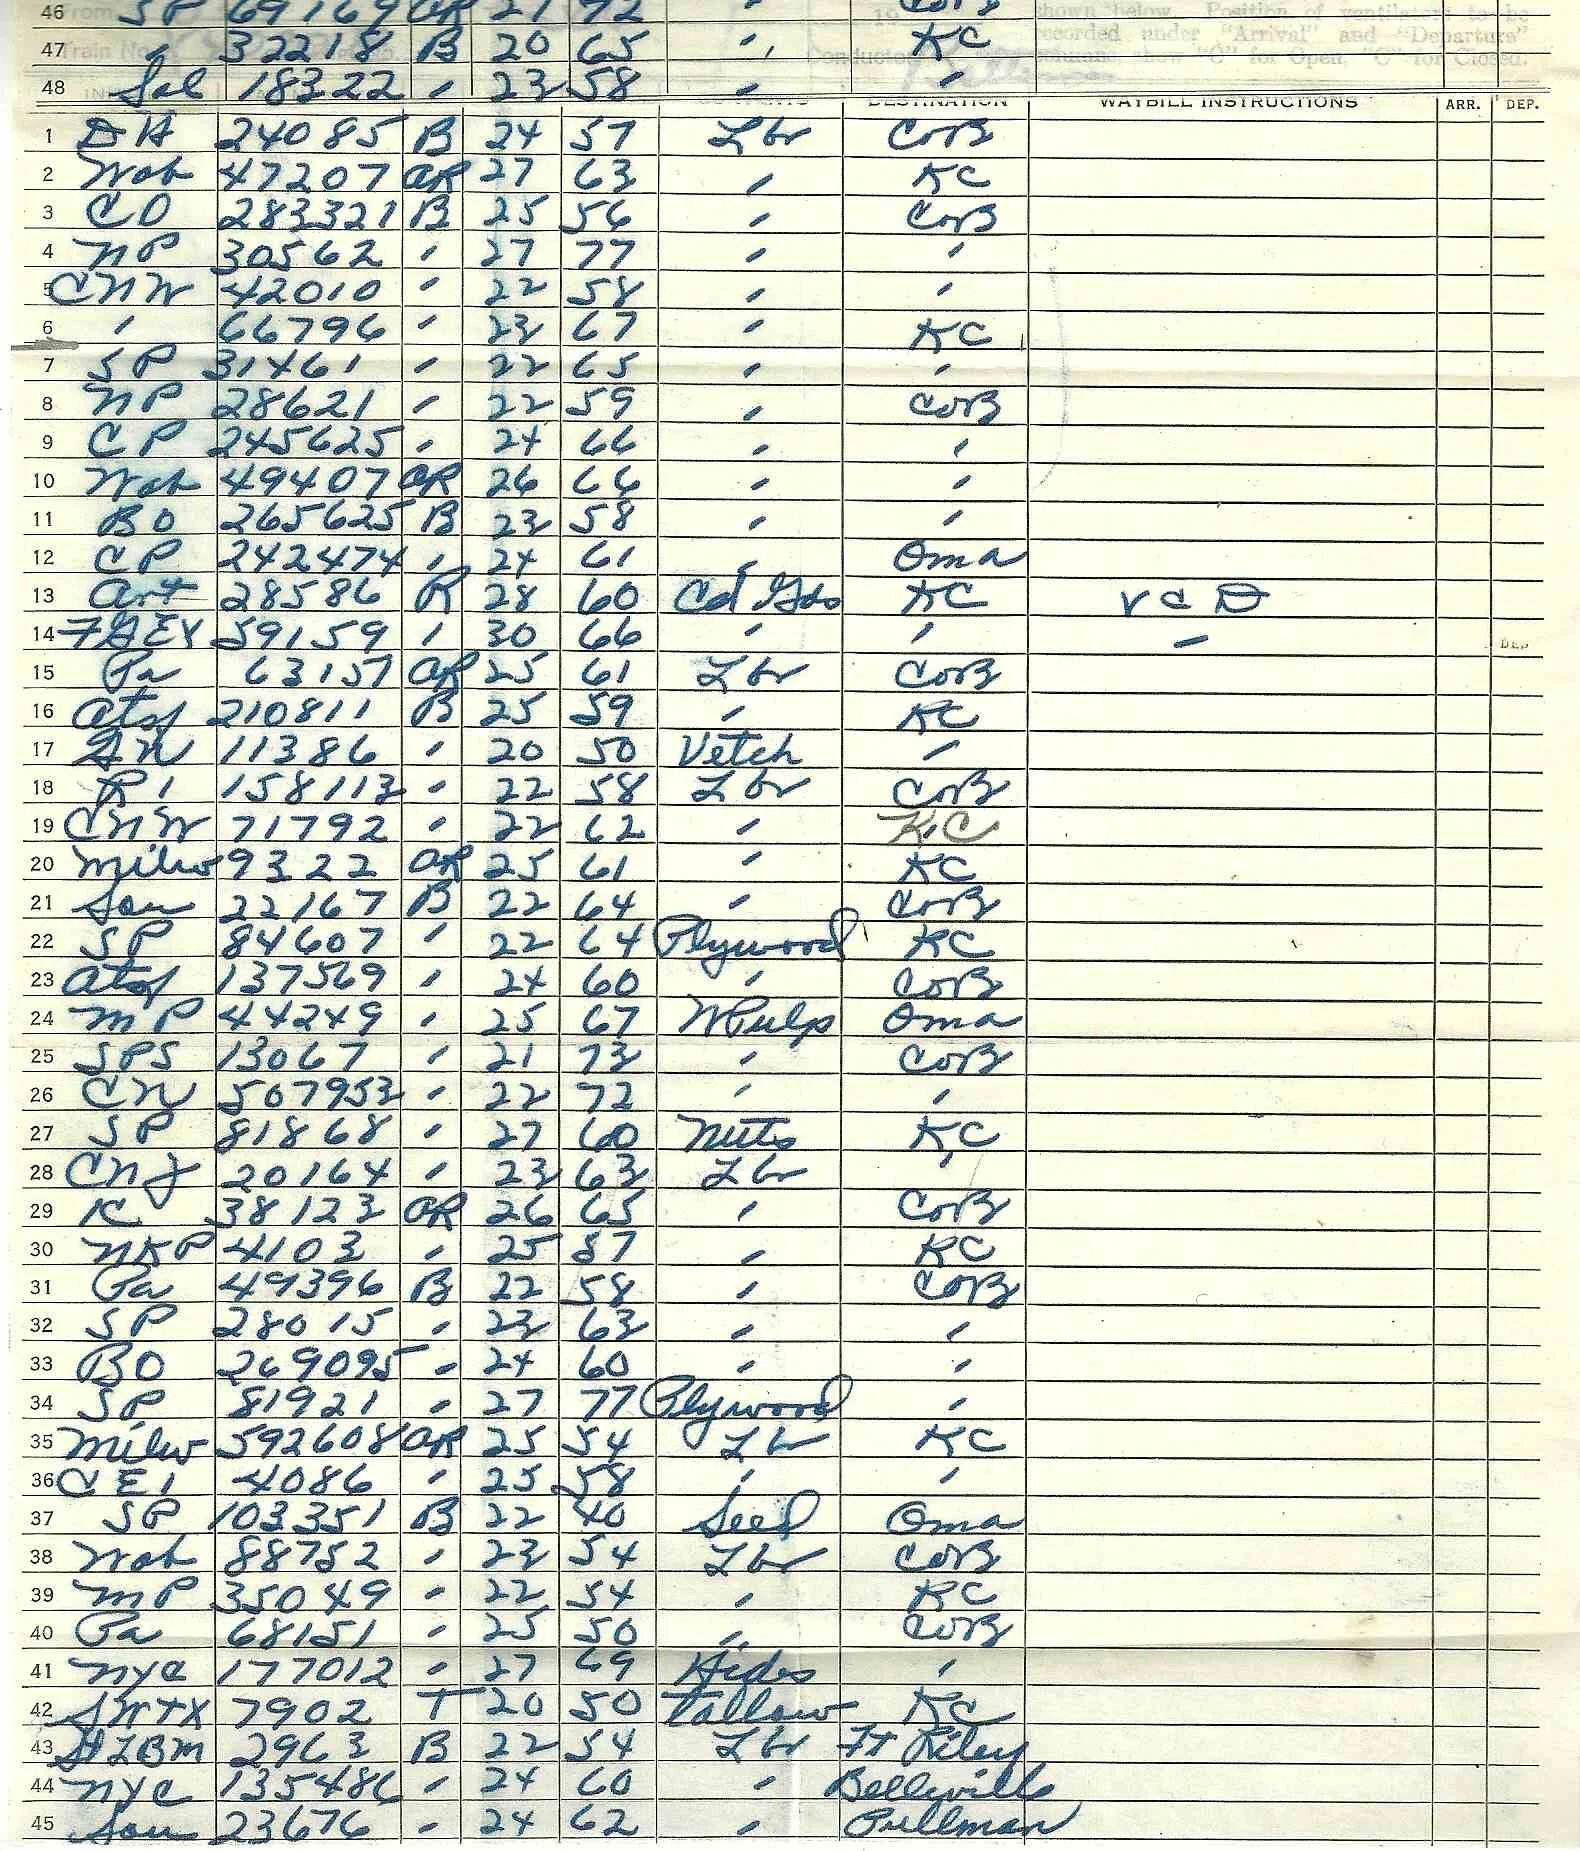 46 SP 69169 AR 21 72 " CoB
47 " 32218 B 20 65 " KC
48 Sal 18322 " 23 58 " "
From 19 shown below. Position of ventilators to be
Train No. recorded under "Arrival" and "Departure"
Conductor columns, show "O" for Open, "C" for Closed.
DESTINATION WAYBILL INSTRUCTIONS ARR. DEP.
1 DH 24085 B 24 57 Lbr CoB
2 Wab 47207 AR 27 63 " KC
3 CO 283321 B 25 56 " CoB
4 NP 30562 " 27 77 " "
5 CNW 42010 " 22 58 " "
6 " 66796 " 23 67 " KC
7 SP 31461 " 22 65 " "
8 NP 28621 " 22 59 " CoB
9 CP 245625 " 24 66 " "
10 Wab 49407 AR 26 66 " "
11 BO 265625 B 23 58 " "
12 CP 242474 " 24 61 " Oma
13 Art 28586 R 28 60 Cd Gds KC V C D
14 FGEX 59159 " 30 66 " " "
15 Pa 63157 AR 25 61 Lbr CoB
16 Atsf 210811 B 25 59 " KC
17 GN 11386 " 20 50 Vetch "
18 RI 158113 " 22 58 Lbr CoB
19 CNW 71792 " 22 62 " KC
20 Milw 9322 AR 25 61 " KC
21 Sou 22167 B 22 64 " CoB
22 SP 84607 " 22 64 Plywood KC
23 Atsf 137569 " 24 60 " CoB
24 MP 44249 " 25 67 WPulp Oma
25 SPS 13067 " 21 73 " CoB
26 CN 507953 " 22 72 " "
27 SP 81868 " 27 60 Nuts KC
28 CNJ 20164 " 23 63 Lbr "
29 IC 38123 AR 26 65 " CoB
30 NKP 4103 " 25 57 " KC
31 Pa 49396 B 22 58 " CoB
32 SP 28015 " 23 63 " "
33 BO 269095 " 24 60 " "
34 SP 81921 " 27 77 Plywood "
35 Milw 592608 AR 25 54 Lbr KC
36 CEI 4086 " 25 58 " "
37 SP 103351 B 22 40 Seed Oma
38 Wab 88752 " 23 54 Lbr CoB
39 MP 35049 " 22 54 " KC
40 Pa 68151 " 25 50 " CoB
41 NYC 177012 " 27 69 Hides "
42 SWTX 7902 T 20 50 Tallow KC
43 StLBM 2963 B 22 54 Lbr Ft Riley
44 NYC 135486 " 24 60 " Belleville
45 Sou 23676 " 24 62 " Pullman